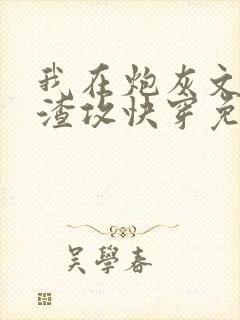 我在炮灰文
渣攻快穿免
吴學春